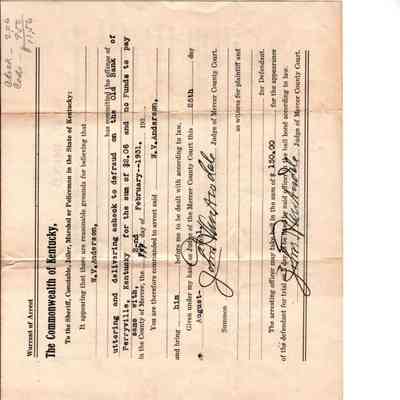 Warrant of Arrest
The Commonwealth of Kentucky,
To the Sheriff, Constable, Jailer, Marshal or Policeman in the State of Kentucky:
It appearing that there are reasonable grounds for believing that
H.V.Anderson,
has committed the offense of
uttering and delivering a check to defraud on the Old Bank of
Perryville, Kentucky for the sum of $2.06 and no Funds to pay
same with,
in the County of Mercer, the 2-nd day of February--1931. 193
You are therefore commanded to arrest said H.V.Anderson,
and bring him before me to be dealt with according to law.
Given under my hand as Judge of the Mercer County Court this 25th day
August-
Judge of Mercer County Court.
Summon as witness for plaintiff and
for Defendant.
The arresting officer may take bail in the sum of $ 150.00 for the appearance
of the defendant for trial
said officer bail bond according to law.
Judge of Mercer County Court.
Check - 2.06